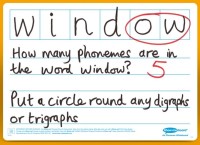 window
How many phonemes are in
the word window? 5
Put a circle round any digraphs
or trigraphs